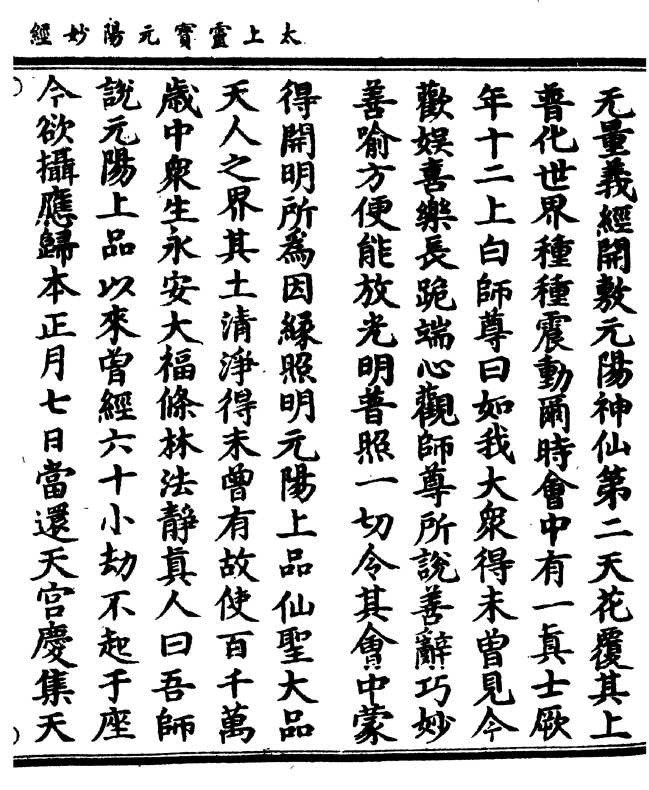 太上靈寶元陽妙經
无量義經開敷元陽神仙第二天花覆其上
普化世界種種震動爾時會中有一真士厥
年十二上白師尊曰如我大眾得未曾見今
歡娛喜樂長跪端心觀師尊所說善辭巧妙
善喻方便能放光明普照一切令其會中蒙
得開明所為因緣照明元陽上品仙聖大品
天人之界其土清淨得未曾有故使百千萬
歲中眾生永安大福條林法靜真人曰吾師
說元陽上品以來曾經六十小劫不起于座
今欲攝應歸本正月七日當還天宮慶集天